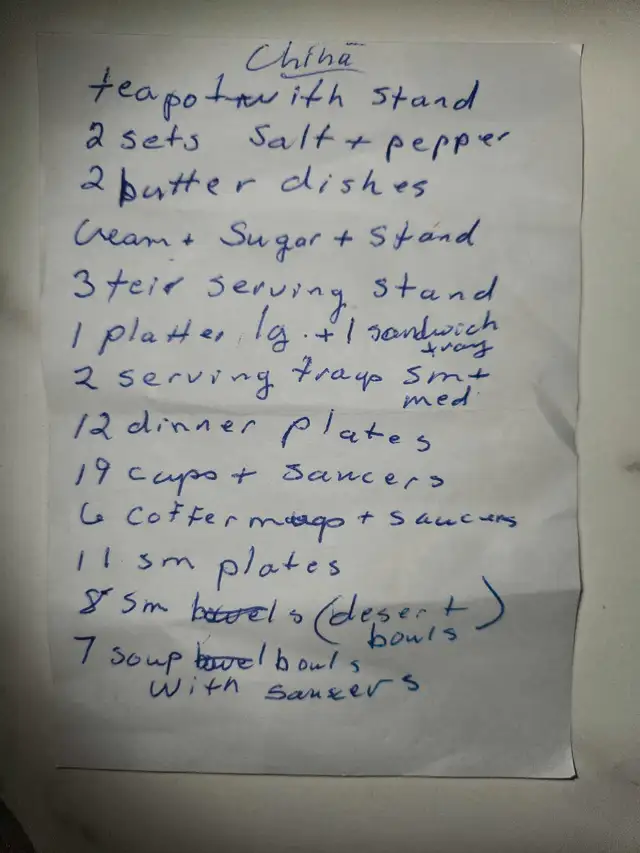 China
teapot with stand
2 sets Salt + pepper
2 butter dishes
Cream + Sugar + Stand
3 teir serving stand
1 platter lg. + 1 sandwich
tray
2 serving trays sm +
med
12 dinner plates
19 cups + saucers
6 coffee mugs + saucers
11 sm plates
8 sm bowels (desert
bowls)
7 soup bowel bowls
with saucers